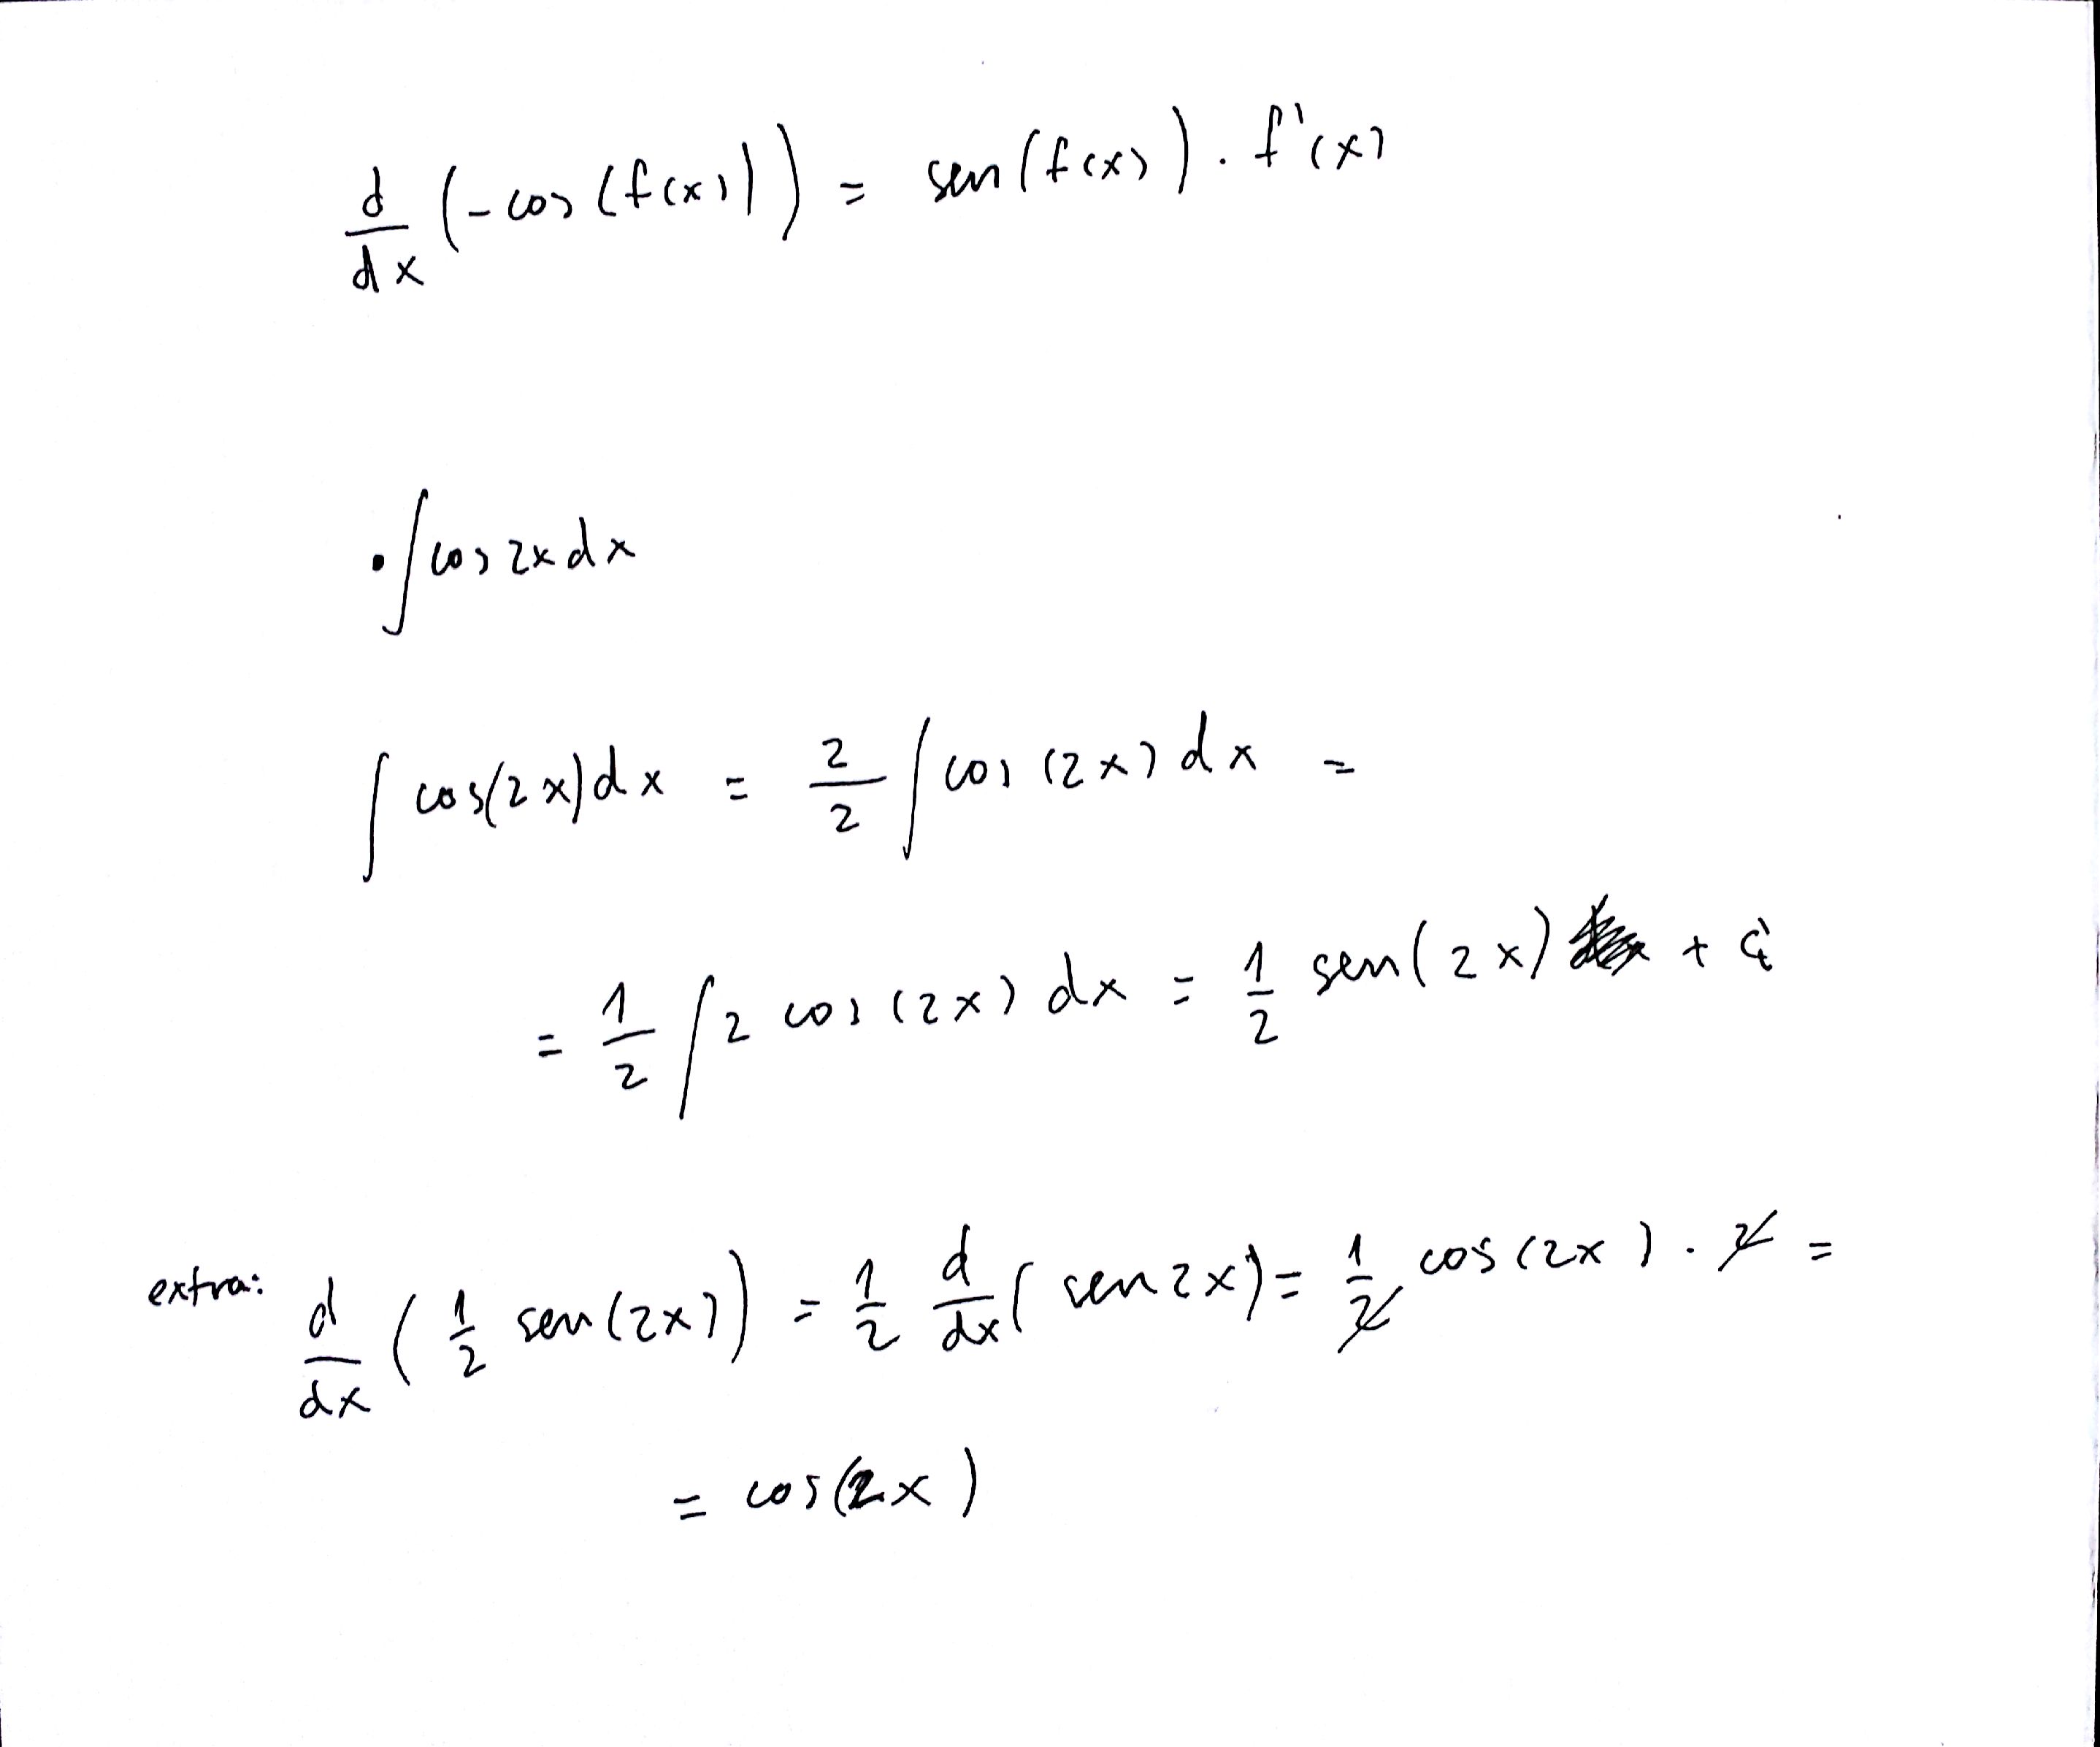 d/dx (-cos (f(x))) = sen (f(x)) · f'(x)
• ∫ cos 2x dx
∫ cos(2x) dx = 2/2 ∫ cos (2x) dx =
= 1/2 ∫ 2 cos (2x) dx = 1/2 sen(2x) +
extra: d/dx (1/2 sen(2x)) = 1/2 d/dx (sen 2x) = 1/2 cos (2x) · 2 =
= cos(2x)